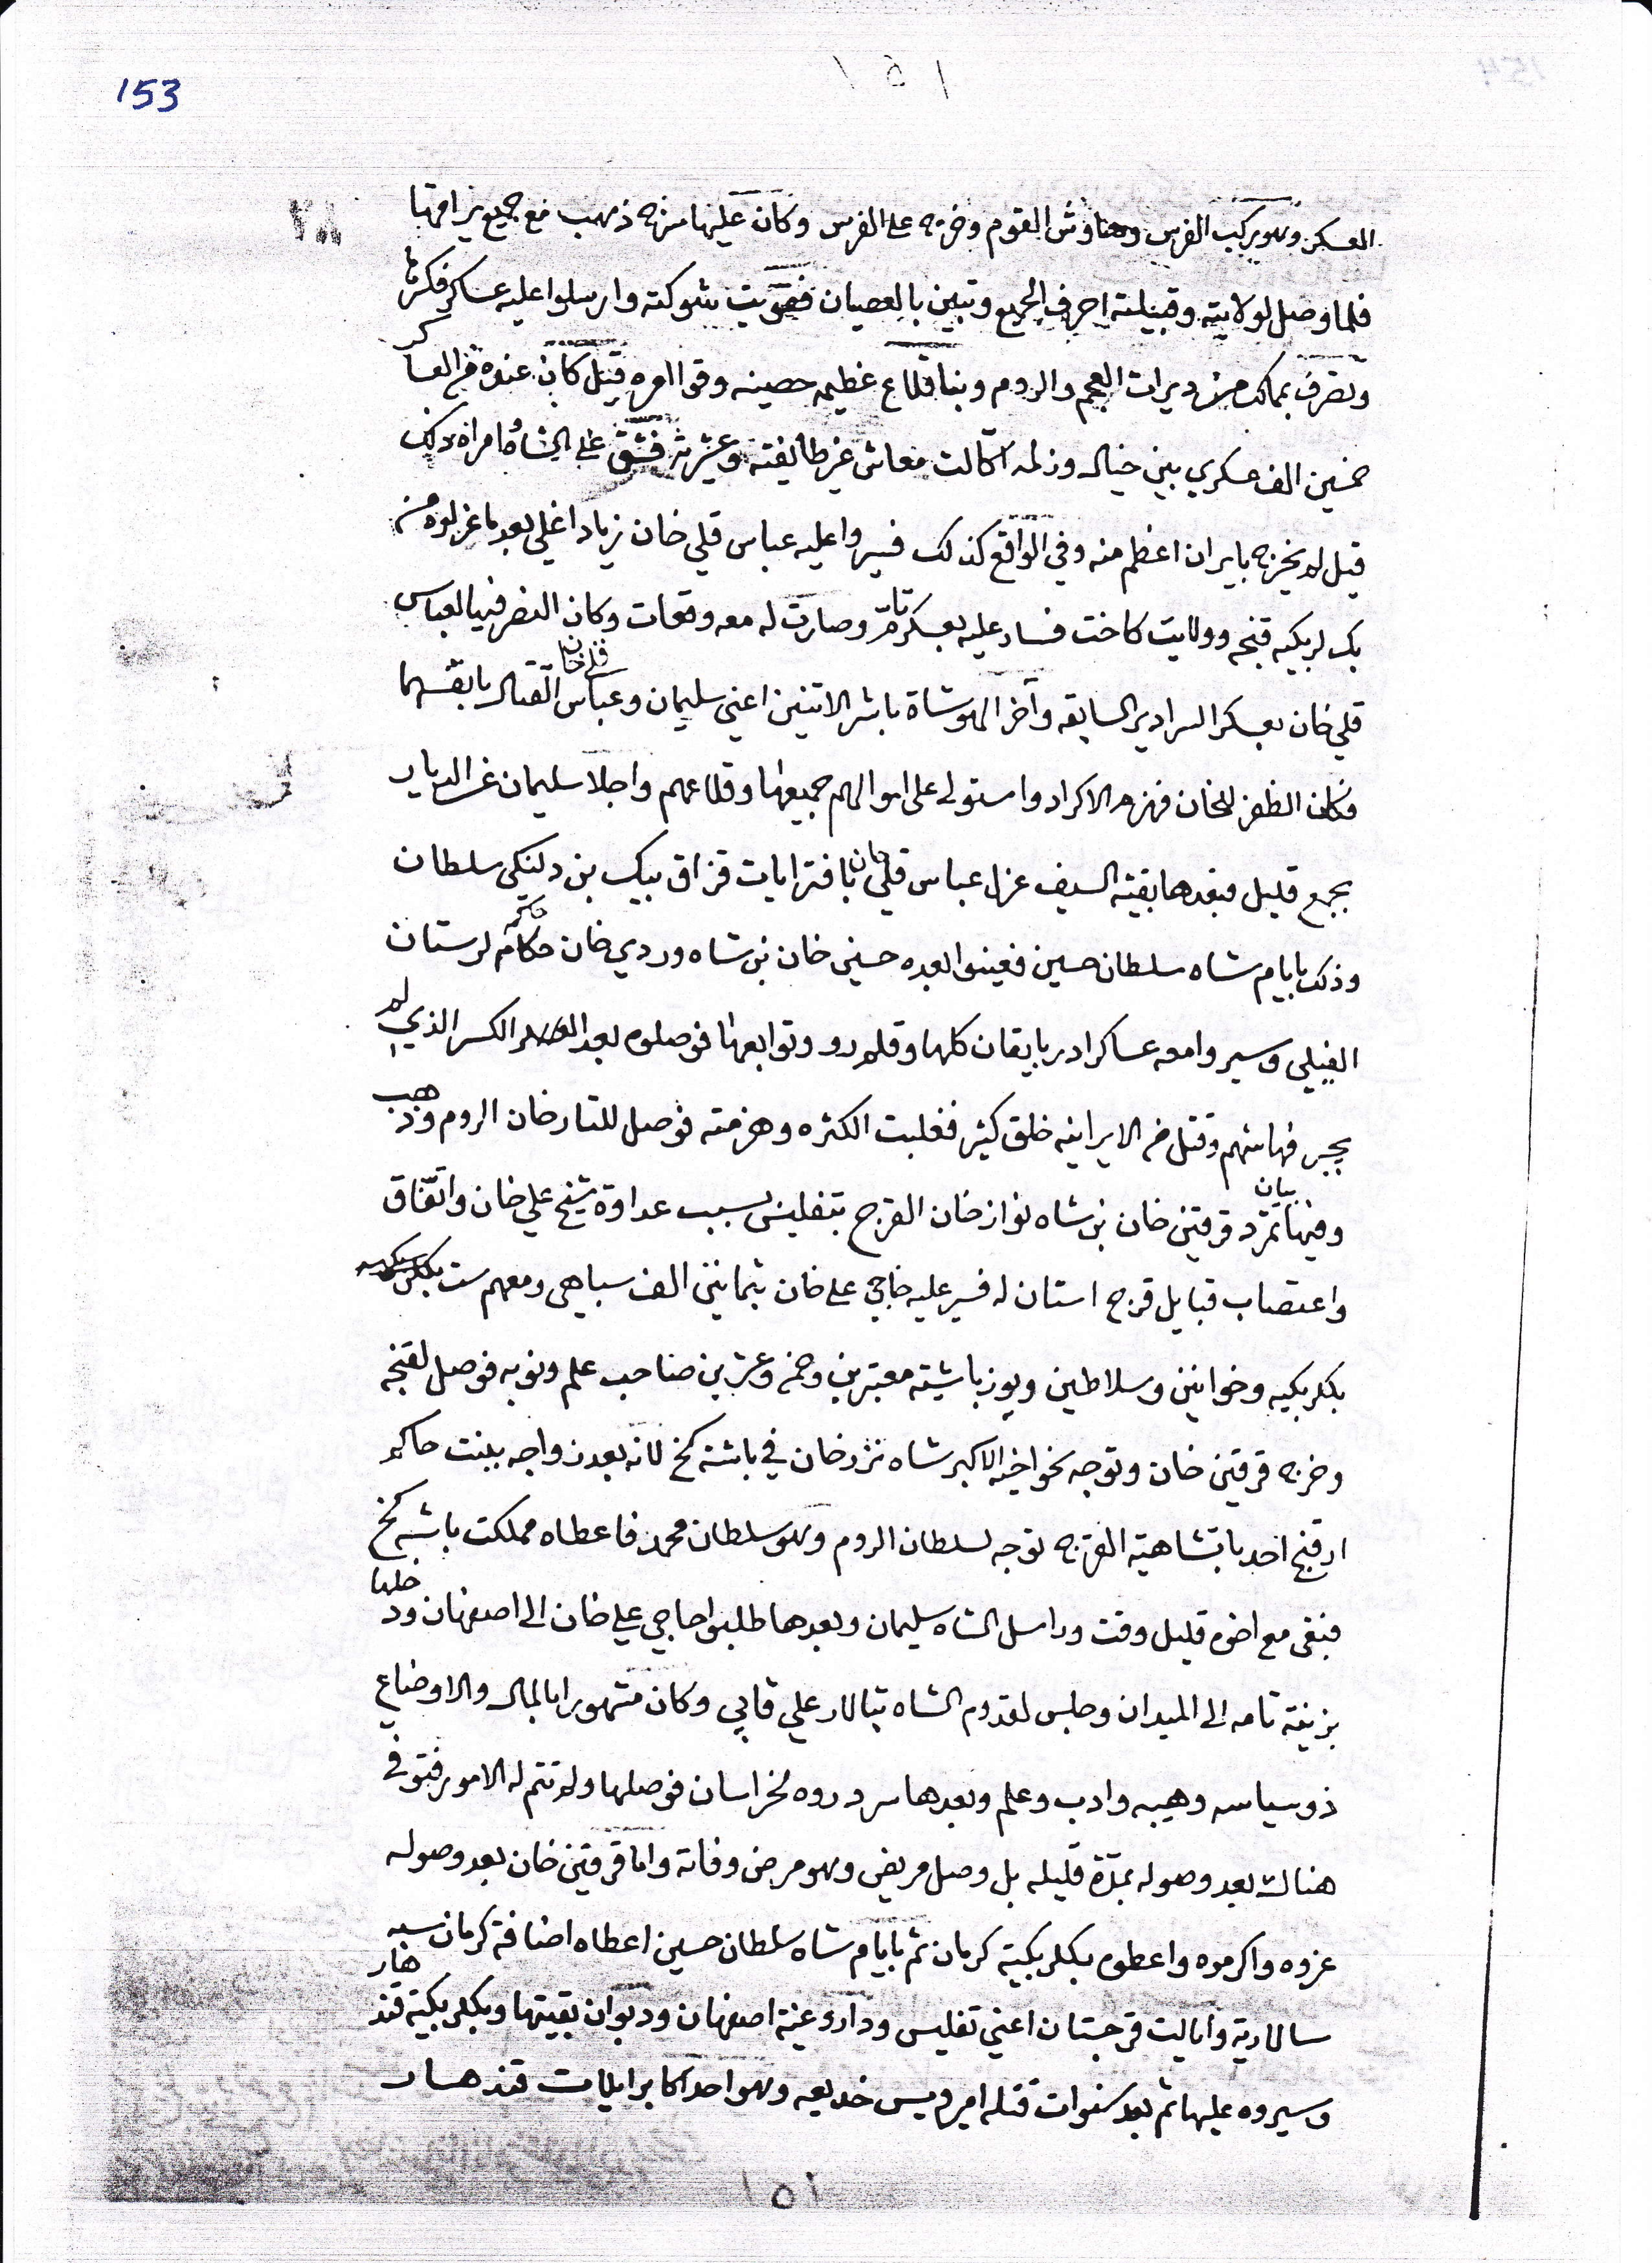 153
١٥١
المعسكر وهو يركب الفرس وهاوش القوم وخرج على الفرس وكان عليها سرج ذهب مع جميع يراقها
فلما وصل لولايته وقبيلته احرف الجميع وتبين بالعصيان فقويت شوكته وارسلوا عليه عساكر فكسرها
وتصرف بممالك من ديرات العجم والروم وبنا قلاع عظيمه حصينه وقوا امره قيل كان عنده من العساكر
خمسين الف عسكري بين خيال وزلمه اكالت معاش غير طائفته وعشيرته فشق على الشاه وامراه ذلك
قيل لم يخرج بايران اعظم منه وفي الواقع كذلك فسيروا عليه عباس قلي خان زياد اغلي بعد ما عزلوه من
بكلربكيه قنجه وولايت كاخت فساد عليه بعسكر تام وصارت له معه وقعات وكان النصر فيها لعباس
قلي خان بعسكر السرادير السابقه وآخر الهوشاة باشر الاثنين اعني سليمان وعباس قلي خان القتال بانفسهما
فكان الظفر للخان فهزم الاكراد واستولى على اموالهم جميعها وقلاعهم واجلا سليمان عن الديار
بجمع قليل فبعدها بقيته السيف عزل عباس قلي خان بافترايات قزاق بيك بن دلنكي سلطان
وذلك بايام شاه سلطان حسين فعينوا بعده حسين خان بن شاه وردي خان حاكم لرستان
الفيلي وسيروا معه عساكر ادربايقان كلها وقلمرو وتوابعها فوصلوه بعد الكسر الذي لم
يجبر فهاشهم وقتل من الايرانيه خلق كثير فغلبت الكثره وهزمته فوصل للتارخان الروم وذهب
وفيها بيان تمرد قرقين خان بن شاه نواز خان القرج بتفليس بسبب عداوة شيخ علي خان واتفاق
واعتصاب قبايل قرج استان له فسير عليه حاجي علي خان بثمانين الف سباهي ومعهم ست
بكلربكيه وخوانين وسلاطين ويوزباشيته معتبرين وخمس وعشرين صاحب علم ونوبه فوصل لقنجه
وخرج قرقين خان وتوجه نحو اخيه الاكبر شاه نزر خان في باشه كخ لانه بعد زواجه ببنت حاكم
احد باتشاهية القرج توجه لسلطان الروم وهو سلطان محمد فاعطاه مملكت باشه كخ
فبقى مع اخوه قليل وقت وراسل الشاه سليمان وبعدها طلبوا حاجي علي خان الى اصفهان ودخلها
بزينة تامه الى الميدان وجلس لقدوم الشاه بتالار علي قابي وكان مشهورا بالمال والاوضاع
ذو سياسه وهيبه وادب وعلم وبعدها سردروه لخراسان فوصلها ولم تتم له الامور فتوفى
هناك بعد وصوله بمدة قليله بل وصل مريض وهو مرض وفاته واما قرقين خان بعد وصوله
عزوه واكرموه واعطوه بكلربكية كرمان ثم بايام شاه سلطان حسين اعطاه اضافة كرمان سبه
سالارية وايالت قرجستان اعني تفليس وداروغية اصفهان وديوان بقيتها وبكلربكية قندهار
وسيروه عليها ثم بعد سنوات قتله امير ويس خديعه وهو احد اكابر ايلات قندهار
١٥١